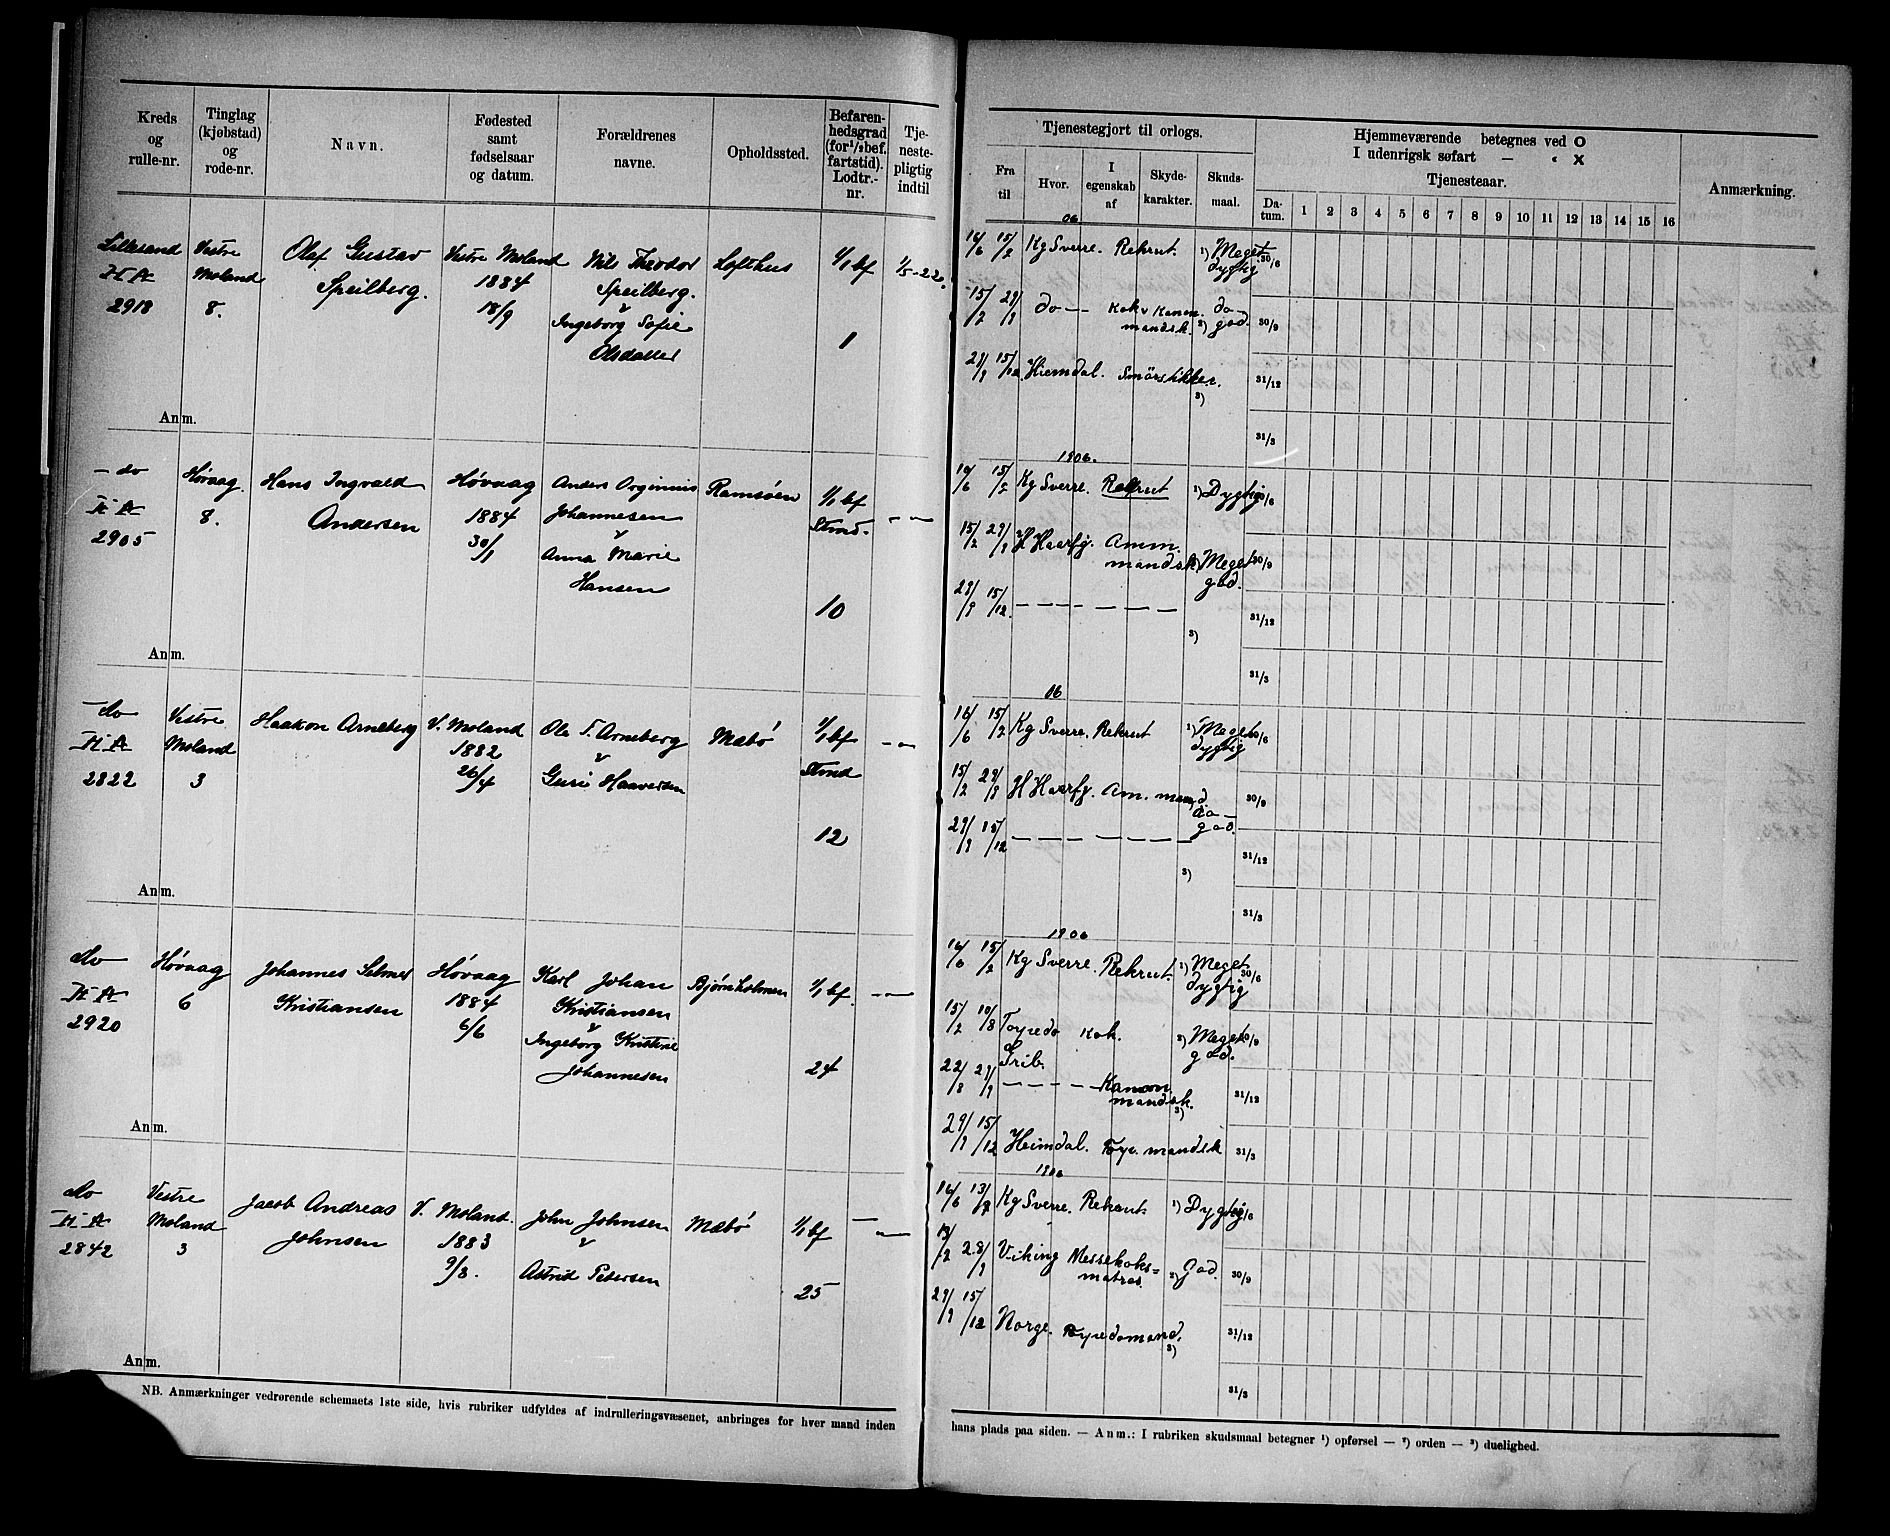 Kreds og rulle-nr.
Tinglag (kjøbstad) og rode-nr.
Navn.
Fødested samt fødselsaar og datum.
Forældrenes navne.
Opholdssted.
Befaren-hedsgrad (for 1/1 bef. fartstid). Lodtr.-nr.
Tje-neste-pligtig indtil
Tjenestegjort til orlogs.
Fra til
Hvor.
I egenskab af
Skyde-karakter.
Skuds-maal.
Hjemmeværende betegnes ved O
I udenrigsk søfart — « X
Tjenesteaar.
Da-tum. 1 2 3 4 5 6 7 8 9 10 11 12 13 14 15 16
Anmærkning.
Lillesand
2918
Vestre
Moland
8.
Olaf Gustav
Speilberg.
Vestre Moland
1884
18/9
Nils Theodor
Speilberg.
v
Ingeborg Sofie
Olsdatter
Lofthus
1/1 bf
1
06
16/6 15/2 Kg Sverre. Rekrut. 1) Meget dygtig 30/6
15/2 29/9 do — Kok v Kanon. mandsk. 2) do — god. 30/9
29/9 15/12 Hiemdal. Smörstikker. 3) 31/12
31/3
Anm.
— do
2905
Høvaag.
8.
Hans Ingvald
Andersen
Høvaag
1884
30/1
Anders Orginius
Johannesen
v
Anna Marie
Hansen
Ramsøen
1/1 bf
Stmd.
10
— „ —
1906.
16/6 15/2 Kg Sverre. Rekrut 1) Dygtig 30/6
15/2 29/9 H Haarfg. Amm. mandsk. 2) Meget god. 30/9
29/9 15/12 — — — — — — 3) 31/12
31/3
Anm.
— do
2822
Vestre
Moland
3
Haakon Arneberg
V. Moland
1882
26/4
Ole T. Arneberg
v
Guri Haaversen
Mæbø
1/1 bf
Stmd
12
— „ —
06
16/6 15/2 Kg Sverre. Rekrut 1) Meget dygtig 30/6
15/2 29/9 H Haarfg. Am. mand. 2) do — god. 30/9
29/9 15/12 — — — — — — 3) 31/12
31/3
Anm.
do
2920
Høvaag
6
Johannes Selmer
Kristiansen
Høvaag
1884
6/6
Karl Johan
Kristiansen
v
Ingeborg Kristine
Johannesen
Bjørnholmen
1/1 bf.
24
— „ —
1906
16/6 15/2 Kg Sverre. Rekrut. 1) Meget dygtig 30/6
15/2 10/8 Torpedo Kok. 2) Meget god. 30/9
22/8 29/9 — — — — Kanon mandsk. 3) 31/12
29/9 15/12 Heimdal. mandsk 31/3
Anm.
do
2842
Vestre
Moland
3
Jacob Andreas
Johnsen
V. Moland.
1883
9/8.
John Johnsen
v
Astrid Petersen
Mæbø
1/1 bf
25
— „ —
1906
16/6 13/2 Kg Sverre. Rekrut. 1) Dygtig 30/6
13/2 28/9 Viking Messekoks= matros. 2) God. 30/9
29/9 15/12 Norge. Torpedomand. 3) 31/12
31/3
Anm.
NB. Anmærkninger vedrørende schemaets 1ste side, hvis rubriker udfyldes af indrulleringsvæsenet, anbringes for hver mand inden
hans plads paa siden. — Anm.: I rubriken skudsmaal betegner 1) opførsel — 2) orden — 3) duelighed.